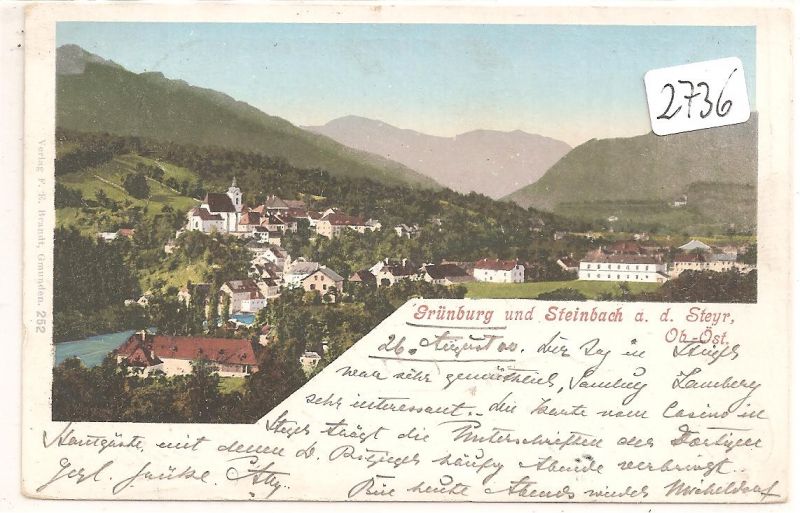 2736
Verlag F. E. Brandt, Gmunden. 252
Grünburg und Steinbach a. d. Steyr,
Ob-Öst.
26. August 00. Der Tag in
war sehr gemüthlich, Lamberg
sehr interessant. die Karte vom Casino in
Steyr trägt die Unterschriften der
Stammgäste, mit denen häufig Abende verbringt.
Bin heute Abends wieder Micheldorf